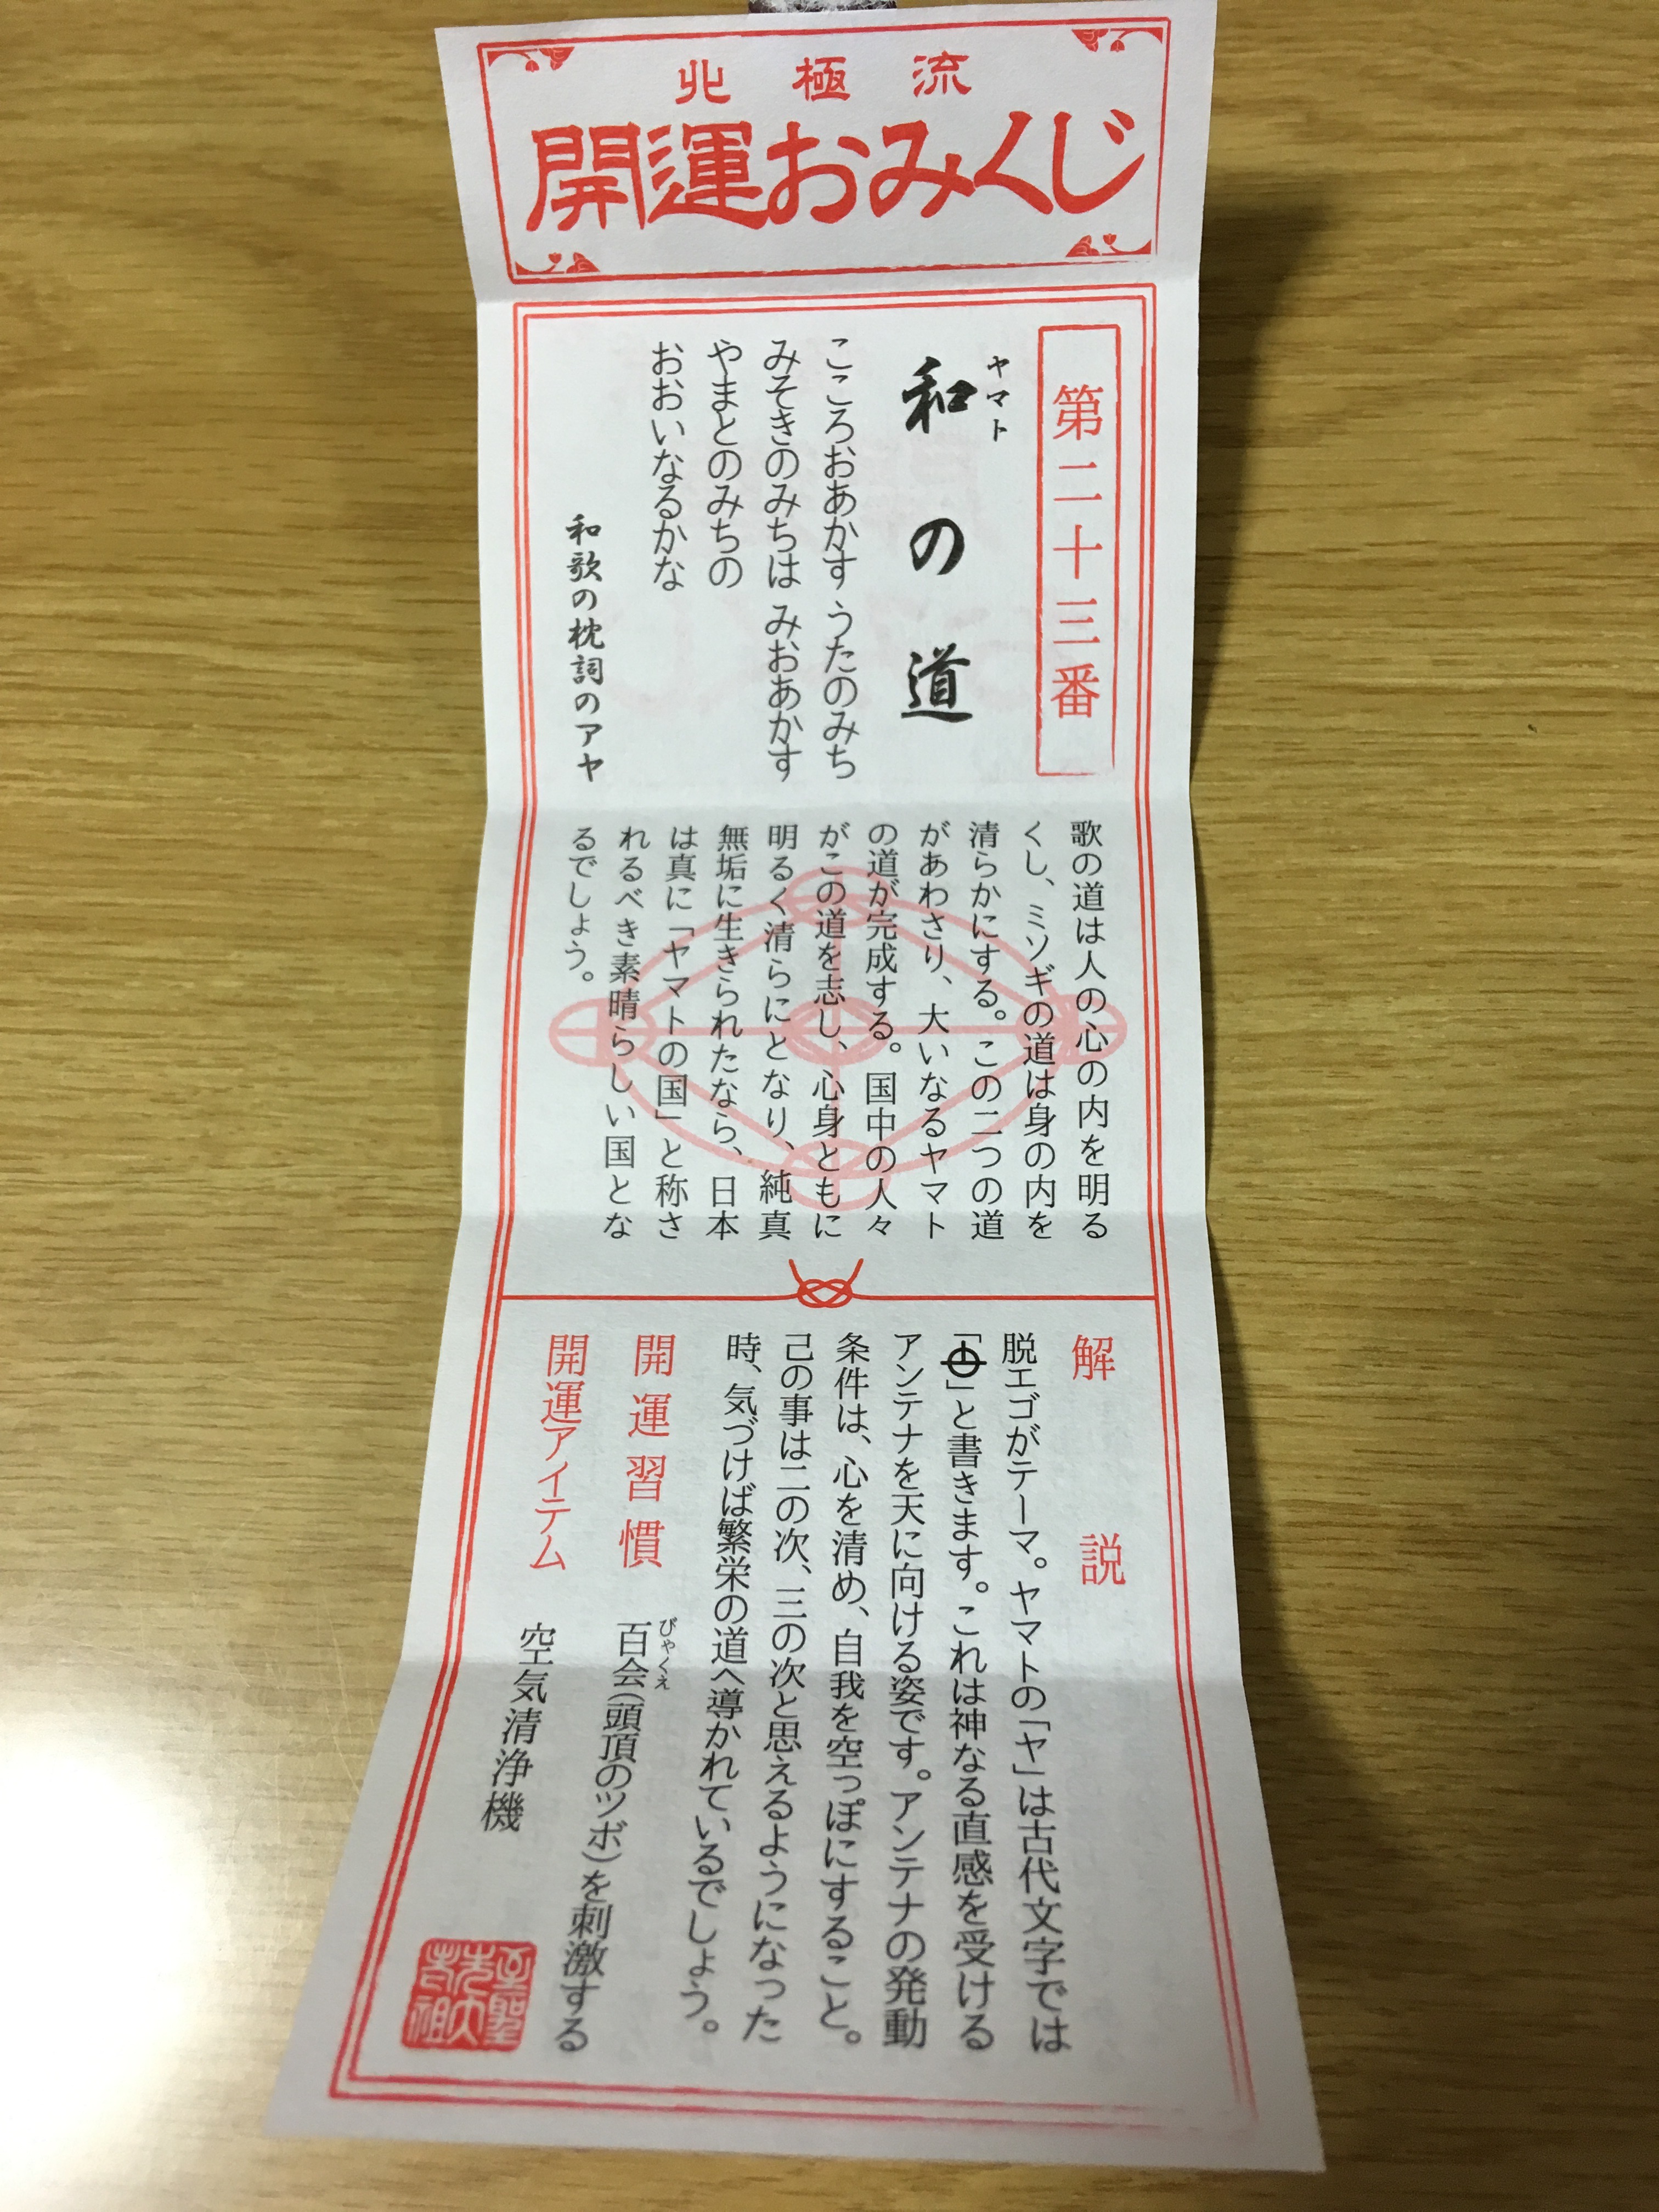 北極流
開運おみくじ
第二十三番
ヤマト
和の道
こころおあかす うたのみち
みそきのみちは みおあかす
やまとのみちの
おおいなるかな
和歌の枕詞のアヤ
歌の道は人の心の内を明る
くし、ミソギの道は身の内を
清らかにする。この二つの道
があわさり、大いなるヤマト
の道が完成する。国中の人々
がこの道を志し、心身ともに
明るく清らにとなり、純真
無垢に生きられたなら、日本
は真に「ヤマトの国」と称さ
れるべき素晴らしい国とな
るでしょう。
解説
脱エゴがテーマ。ヤマトの「ヤ」は古代文字では
「」と書きます。これは神なる直感を受ける
アンテナを天に向ける姿です。アンテナの発動
条件は、心を清め、自我を空っぽにすること。
己の事は二の次、三の次と思えるようになった
時、気づけば繁栄の道へ導かれているでしょう。
開運習慣
びゃくえ
百会(頭頂のツボ)を刺激する
開運アイテム
空気清浄機